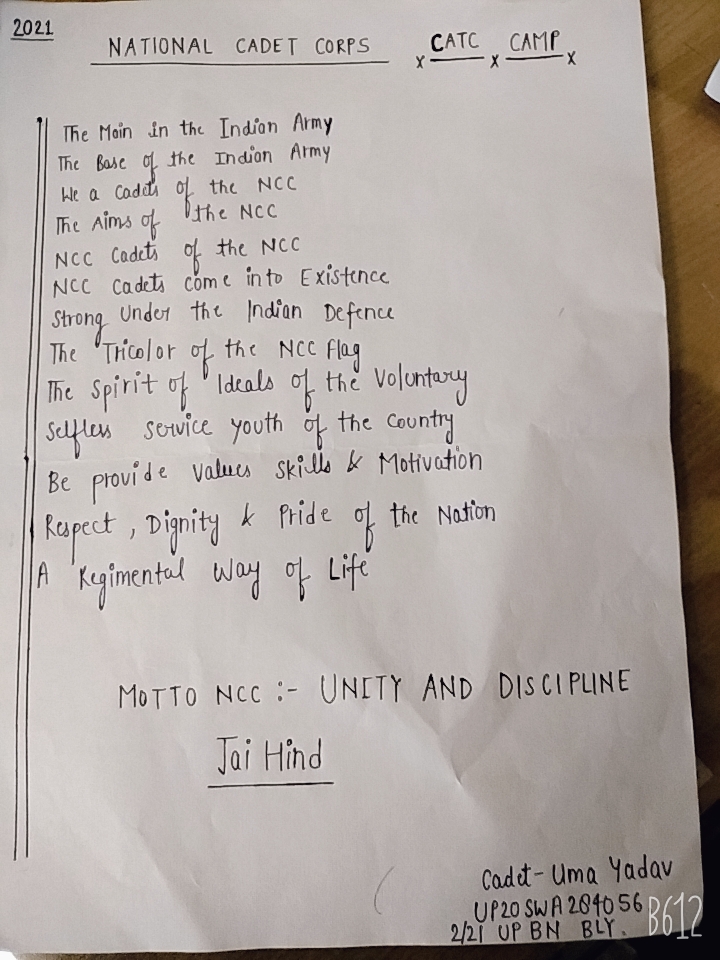 2021
NATIONAL CADET CORPS x CATC x CAMP x
The Main in the Indian Army
The Base of the Indian Army
We a Cadets of the NCC
The Aims of the NCC
NCC Cadets of the NCC
NCC Cadets come into Existence
Strong Under the Indian Defence
The Tricolor of the NCC Flag
The Spirit of Ideals of the Voluntary
Selfless service youth of the Country
Be provide values skills & Motivation
Respect, Dignity & Pride of the Nation
A Regimental Way of Life
MOTTO NCC :- UNITY AND DISCIPLINE
Jai Hind
Cadet- Uma Yadav
UP20SWA284056
2/21 UP BN BLY.
B612